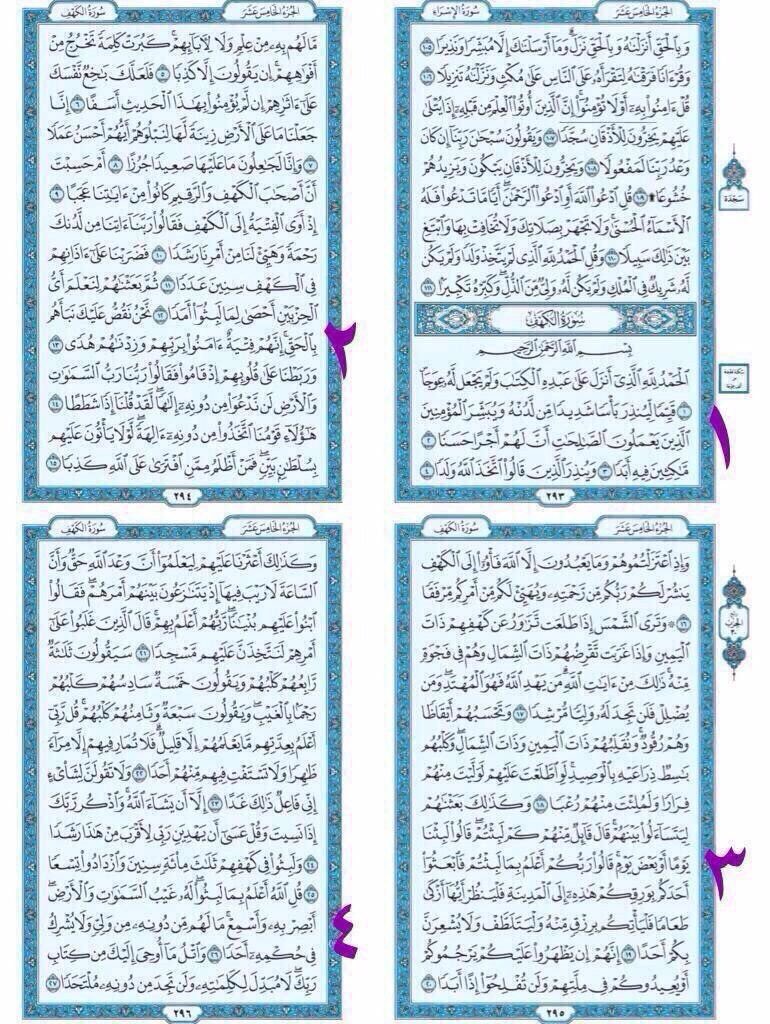 الجزء الخامس عشر
سورة الإسراء
وَبِالْحَقِّ أَنزَلْنَاهُ وَبِالْحَقِّ نَزَلَ وَمَا أَرْسَلْنَاكَ إِلَّا مُبَشِّرًا وَنَذِيرًا ١٠٥
وَقُرْءَانًا فَرَقْنَاهُ لِتَقْرَأَهُ عَلَى النَّاسِ عَلَى مُكْثٍ وَنَزَّلْنَاهُ تَنزِيلًا ١٠٦
قُلْ ءَامِنُوا بِهِ أَوْ لَا تُؤْمِنُوا إِنَّ الَّذِينَ أُوتُوا الْعِلْمَ مِن قَبْلِهِ إِذَا يُتْلَى
عَلَيْهِمْ يَخِرُّونَ لِلْأَذْقَانِ سُجَّدًا ١٠٧ وَيَقُولُونَ سُبْحَانَ رَبِّنَا إِن كَانَ
وَعْدُ رَبِّنَا لَمَفْعُولًا ١٠٨ وَيَخِرُّونَ لِلْأَذْقَانِ يَبْكُونَ وَيَزِيدُهُمْ
خُشُوعًا ۩ ١٠٩ قُلِ ادْعُوا اللَّهَ أَوِ ادْعُوا الرَّحْمَنَ أَيًّا مَّا تَدْعُوا فَلَهُ
الْأَسْمَاءُ الْحُسْنَى وَلَا تَجْهَرْ بِصَلَاتِكَ وَلَا تُخَافِتْ بِهَا وَابْتَغِ
بَيْنَ ذَلِكَ سَبِيلًا ١١٠ وَقُلِ الْحَمْدُ لِلَّهِ الَّذِي لَمْ يَتَّخِذْ وَلَدًا وَلَمْ يَكُن
لَّهُ شَرِيكٌ فِي الْمُلْكِ وَلَمْ يَكُن لَّهُ وَلِيٌّ مِّنَ الذُّلِّ وَكَبِّرْهُ تَكْبِيرًا ١١١
سجدة
سورة الكهف
بِسْمِ اللَّهِ الرَّحْمَنِ الرَّحِيمِ
الْحَمْدُ لِلَّهِ الَّذِي أَنزَلَ عَلَى عَبْدِهِ الْكِتَابَ وَلَمْ يَجْعَل لَّهُ عِوَجًا
١ قَيِّمًا لِّيُنذِرَ بَأْسًا شَدِيدًا مِّن لَّدُنْهُ وَيُبَشِّرَ الْمُؤْمِنِينَ
الَّذِينَ يَعْمَلُونَ الصَّالِحَاتِ أَنَّ لَهُمْ أَجْرًا حَسَنًا ٢
مَّاكِثِينَ فِيهِ أَبَدًا ٣ وَيُنذِرَ الَّذِينَ قَالُوا اتَّخَذَ اللَّهُ وَلَدًا ٤
٢٩٣
١
الجزء الخامس عشر
سورة الكهف
مَّا لَهُم بِهِ مِنْ عِلْمٍ وَلَا لِآبَائِهِمْ كَبُرَتْ كَلِمَةً تَخْرُجُ مِنْ
أَفْوَاهِهِمْ إِن يَقُولُونَ إِلَّا كَذِبًا ٥ فَلَعَلَّكَ بَاخِعٌ نَّفْسَكَ
عَلَى ءَاثَارِهِمْ إِن لَّمْ يُؤْمِنُوا بِهَذَا الْحَدِيثِ أَسَفًا ٦ إِنَّا
جَعَلْنَا مَا عَلَى الْأَرْضِ زِينَةً لَّهَا لِنَبْلُوَهُمْ أَيُّهُمْ أَحْسَنُ عَمَلًا
٧ وَإِنَّا لَجَاعِلُونَ مَا عَلَيْهَا صَعِيدًا جُرُزًا ٨ أَمْ حَسِبْتَ
أَنَّ أَصْحَابَ الْكَهْفِ وَالرَّقِيمِ كَانُوا مِنْ ءَايَاتِنَا عَجَبًا ٩
إِذْ أَوَى الْفِتْيَةُ إِلَى الْكَهْفِ فَقَالُوا رَبَّنَا ءَاتِنَا مِن لَّدُنكَ
رَحْمَةً وَهَيِّئْ لَنَا مِنْ أَمْرِنَا رَشَدًا ١٠ فَضَرَبْنَا عَلَى ءَاذَانِهِمْ
فِي الْكَهْفِ سِنِينَ عَدَدًا ١١ ثُمَّ بَعَثْنَاهُمْ لِنَعْلَمَ أَيُّ
الْحِزْبَيْنِ أَحْصَى لِمَا لَبِثُوا أَمَدًا ١٢ نَّحْنُ نَقُصُّ عَلَيْكَ نَبَأَهُم
بِالْحَقِّ إِنَّهُمْ فِتْيَةٌ ءَامَنُوا بِرَبِّهِمْ وَزِدْنَاهُمْ هُدًى ١٣
وَرَبَطْنَا عَلَى قُلُوبِهِمْ إِذْ قَامُوا فَقَالُوا رَبُّنَا رَبُّ السَّمَاوَاتِ
وَالْأَرْضِ لَن نَّدْعُوَا مِن دُونِهِ إِلَهًا لَّقَدْ قُلْنَا إِذًا شَطَطًا ١٤
هَؤُلَاءِ قَوْمُنَا اتَّخَذُوا مِن دُونِهِ ءَالِهَةً لَّوْلَا يَأْتُونَ عَلَيْهِم
بِسُلْطَانٍ بَيِّنٍ فَمَنْ أَظْلَمُ مِمَّنِ افْتَرَى عَلَى اللَّهِ كَذِبًا ١٥
٢٩٤
٢
الجزء الخامس عشر
سورة الكهف
وَإِذِ اعْتَزَلْتُمُوهُمْ وَمَا يَعْبُدُونَ إِلَّا اللَّهَ فَأْوُوا إِلَى الْكَهْفِ
يَنشُرْ لَكُمْ رَبُّكُم مِّن رَّحْمَتِهِ وَيُهَيِّئْ لَكُم مِّنْ أَمْرِكُم مِّرْفَقًا
١٦ ۞ وَتَرَى الشَّمْسَ إِذَا طَلَعَت تَّزَاوَرُ عَن كَهْفِهِمْ ذَاتَ
الْيَمِينِ وَإِذَا غَرَبَت تَّقْرِضُهُمْ ذَاتَ الشِّمَالِ وَهُمْ فِي فَجْوَةٍ
مِّنْهُ ذَلِكَ مِنْ ءَايَاتِ اللَّهِ مَن يَهْدِ اللَّهُ فَهُوَ الْمُهْتَدِ وَمَن
يُضْلِلْ فَلَن تَجِدَ لَهُ وَلِيًّا مُّرْشِدًا ١٧ وَتَحْسَبُهُمْ أَيْقَاظًا
وَهُمْ رُقُودٌ وَنُقَلِّبُهُمْ ذَاتَ الْيَمِينِ وَذَاتَ الشِّمَالِ وَكَلْبُهُم
بَاسِطٌ ذِرَاعَيْهِ بِالْوَصِيدِ لَوِ اطَّلَعْتَ عَلَيْهِمْ لَوَلَّيْتَ مِنْهُمْ
فِرَارًا وَلَمُلِئْتَ مِنْهُمْ رُعْبًا ١٨ وَكَذَلِكَ بَعَثْنَاهُمْ
لِيَتَسَاءَلُوا بَيْنَهُمْ قَالَ قَائِلٌ مِّنْهُمْ كَمْ لَبِثْتُمْ قَالُوا لَبِثْنَا
يَوْمًا أَوْ بَعْضَ يَوْمٍ قَالُوا رَبُّكُمْ أَعْلَمُ بِمَا لَبِثْتُمْ فَابْعَثُوا
أَحَدَكُم بِوَرِقِكُمْ هَذِهِ إِلَى الْمَدِينَةِ فَلْيَنظُرْ أَيُّهَا أَزْكَى
طَعَامًا فَلْيَأْتِكُم بِرِزْقٍ مِّنْهُ وَلْيَتَلَطَّفْ وَلَا يُشْعِرَنَّ
بِكُمْ أَحَدًا ١٩ إِنَّهُمْ إِن يَظْهَرُوا عَلَيْكُمْ يَرْجُمُوكُمْ
أَوْ يُعِيدُوكُمْ فِي مِلَّتِهِمْ وَلَن تُفْلِحُوا إِذًا أَبَدًا ٢٠
٢٩٥
٣
الجزء الخامس عشر
سورة الكهف
وَكَذَلِكَ أَعْثَرْنَا عَلَيْهِمْ لِيَعْلَمُوا أَنَّ وَعْدَ اللَّهِ حَقٌّ وَأَنَّ
السَّاعَةَ لَا رَيْبَ فِيهَا إِذْ يَتَنَازَعُونَ بَيْنَهُمْ أَمْرَهُمْ فَقَالُوا
ابْنُوا عَلَيْهِم بُنْيَانًا رَّبُّهُمْ أَعْلَمُ بِهِمْ قَالَ الَّذِينَ غَلَبُوا عَلَى
أَمْرِهِمْ لَنَتَّخِذَنَّ عَلَيْهِم مَّسْجِدًا ٢١ سَيَقُولُونَ ثَلَاثَةٌ
رَّابِعُهُمْ كَلْبُهُمْ وَيَقُولُونَ خَمْسَةٌ سَادِسُهُمْ كَلْبُهُمْ
رَجْمًا بِالْغَيْبِ وَيَقُولُونَ سَبْعَةٌ وَثَامِنُهُمْ كَلْبُهُمْ قُل رَّبِّي
أَعْلَمُ بِعِدَّتِهِم مَّا يَعْلَمُهُمْ إِلَّا قَلِيلٌ فَلَا تُمَارِ فِيهِمْ إِلَّا مِرَاءً
ظَاهِرًا وَلَا تَسْتَفْتِ فِيهِم مِّنْهُمْ أَحَدًا ٢٢ وَلَا تَقُولَنَّ لِشَايْءٍ
إِنِّي فَاعِلٌ ذَلِكَ غَدًا ٢٣ إِلَّا أَن يَشَاءَ اللَّهُ وَاذْكُر رَّبَّكَ
إِذَا نَسِيتَ وَقُلْ عَسَى أَن يَهْدِيَنِ رَبِّي لِأَقْرَبَ مِنْ هَذَا رَشَدًا
٢٤ وَلَبِثُوا فِي كَهْفِهِمْ ثَلَاثَ مِائَةٍ سِنِينَ وَازْدَادُوا تِسْعًا
٢٥ قُلِ اللَّهُ أَعْلَمُ بِمَا لَبِثُوا لَهُ غَيْبُ السَّمَاوَاتِ وَالْأَرْضِ
أَبْصِرْ بِهِ وَأَسْمِعْ مَا لَهُم مِّن دُونِهِ مِن وَلِيٍّ وَلَا يُشْرِكُ
فِي حُكْمِهِ أَحَدًا ٢٦ وَاتْلُ مَا أُوحِيَ إِلَيْكَ مِن كِتَابِ
رَبِّكَ لَا مُبَدِّلَ لِكَلِمَاتِهِ وَلَن تَجِدَ مِن دُونِهِ مُلْتَحَدًا ٢٧
٢٩٦
٤